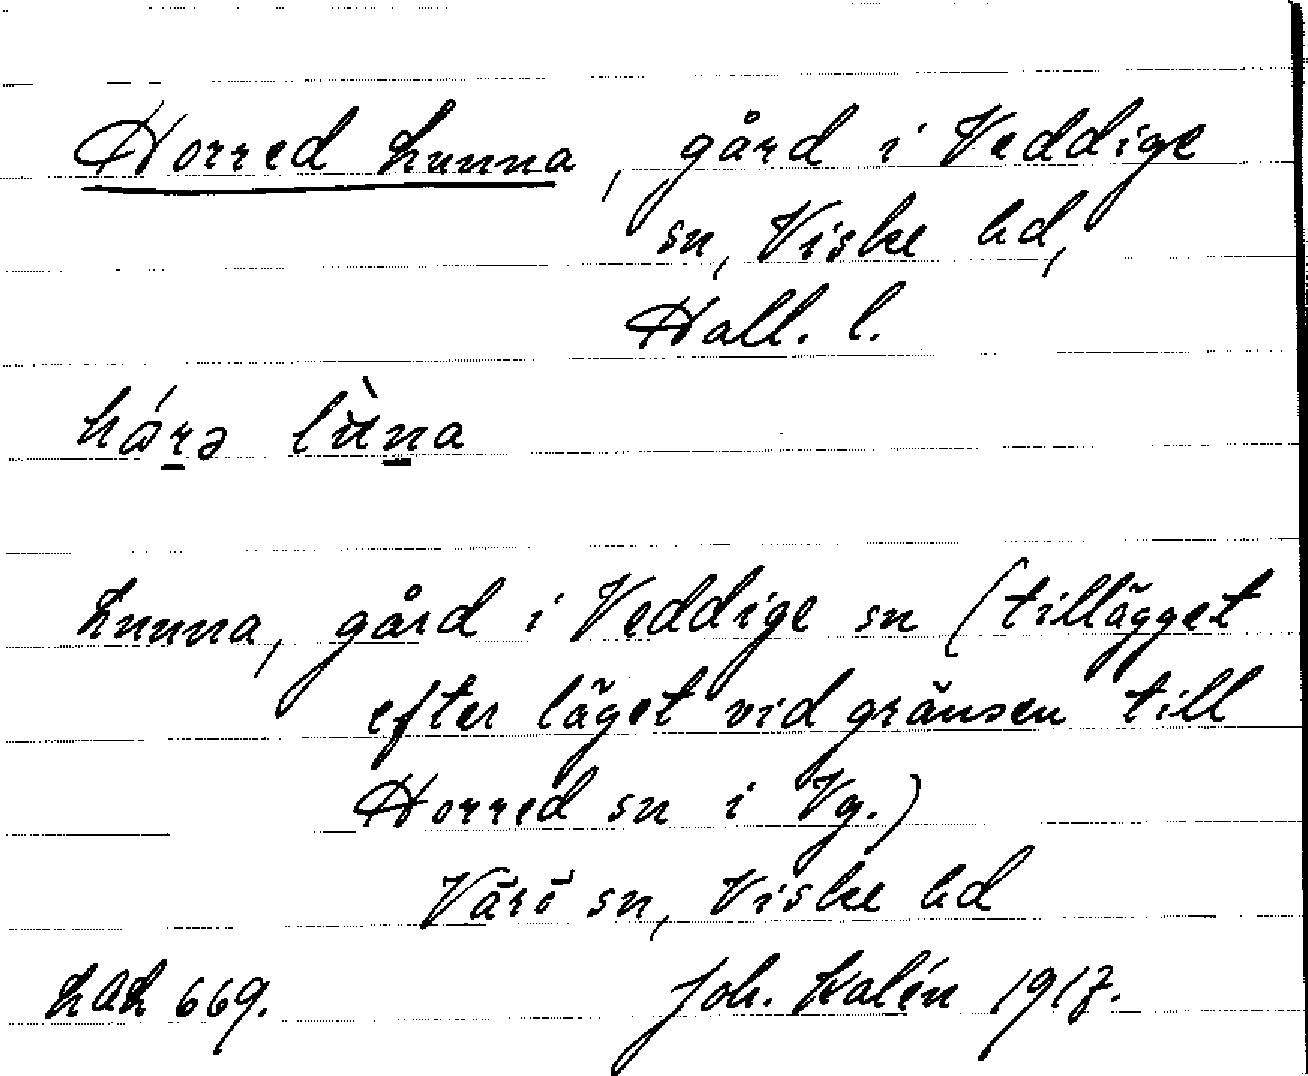 Horred Lunna, gård i Veddige
sn, Viske hd,
Hall. l.
lùna
Lunna, gård i Veddige sn (tillägget
efter läget vid gränsen till
Horred sn i Vg.)
Värö sn, Viske hd
669. Joh. Kalén 1917.